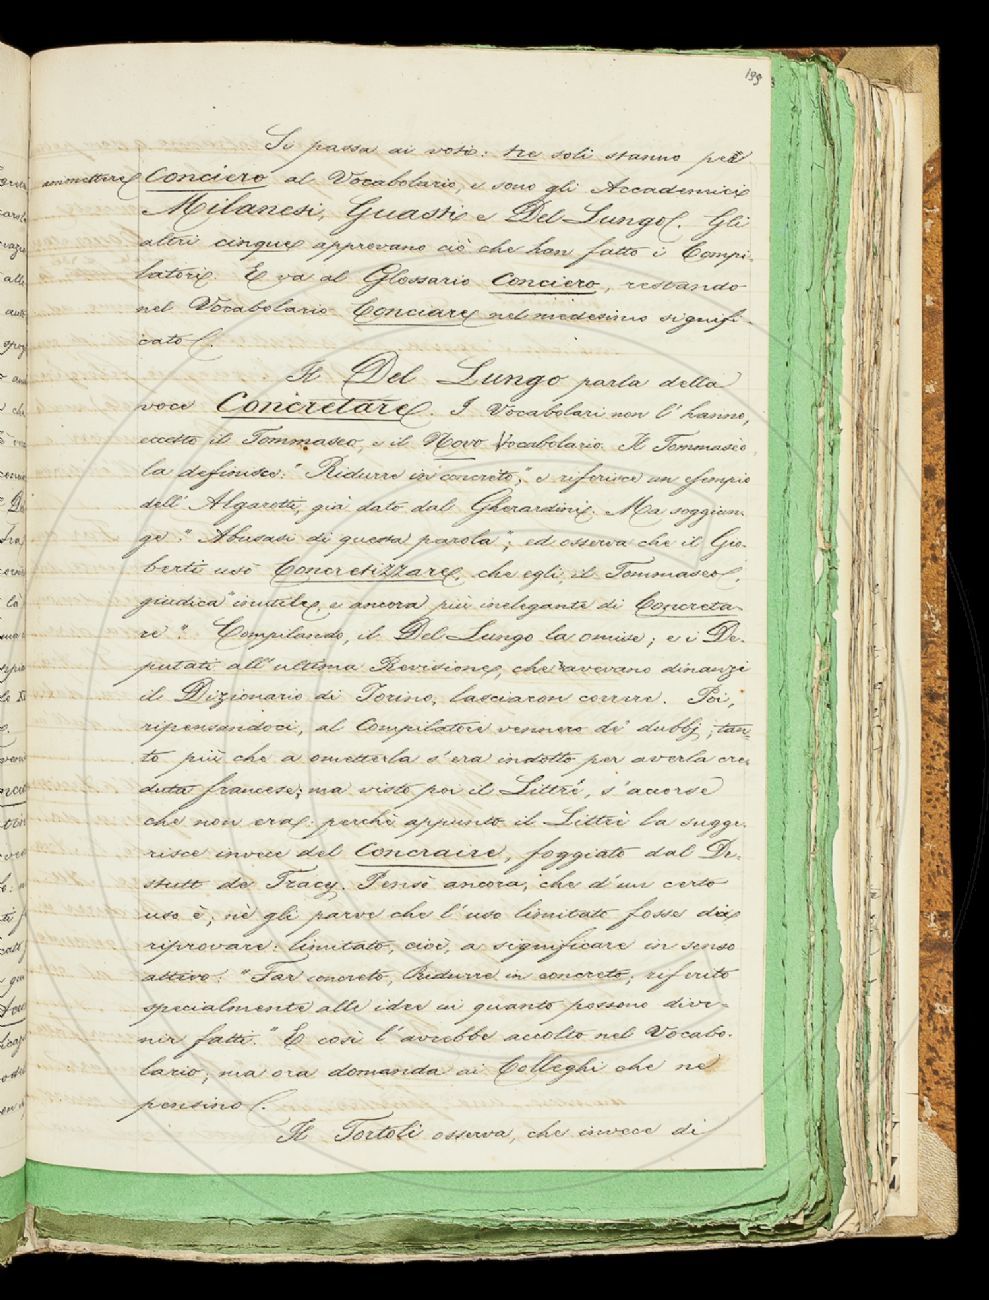 199
Si passa ai voti: tre soli stanno per
ammettere Conciero al Vocabolario, e sono gli Accademici
Milanesi, Guasti e Del Lungo. Gli
altri cinque approvano ciò che han fatto i Compi-
latori. E va al Glossario Conciero, restando
nel Vocabolario Conciare nel medesimo signifi-
cato.
Il Del Lungo parla della
voce Concretare. I Vocabolari non l'hanno,
eccetto il Tommaseo, e il Novo Vocabolario. Il Tommaseo
la definisce: "Ridurre in concreto", e riferisce un esempio
dell'Algarotti, già dato dal Gherardini. Ma soggiun-
ge: "Abusasi di questa parola"; ed osserva che il Gio-
berti usò Concretizzare, che egli, il Tommaseo,
giudica "inutile, e ancora più inelegante di Concreta-
re". Compilando, il Del Lungo la omise; e i De-
putati all'ultima Revisione, che avevano dinanzi
il Dizionario di Torino, lasciaron correre. Poi,
ripensandoci, al Compilatore vennero de' dubbj; tan-
to più che a ometterla s'era indotto per averla cre-
duta francese; ma visto poi il Littré, s'accorse
che non era: perchè appunto il Littré la sugge-
risce invece del Concraire, foggiato dal De-
stutt de Tracy. Pensò ancora, che d'un certo
uso è; nè gli parve che l'uso limitato fosse da
riprovare: limitato, cioè, a significare in senso
attivo: "Far concreto, Ridurre in concreto; riferito
specialmente alle idee in quanto possono dive-
nir fatti." E così l'avrebbe accolto nel Vocabo-
lario; ma ora domanda ai Colleghi che ne
pensino.
Il Tortoli osserva, che invece di